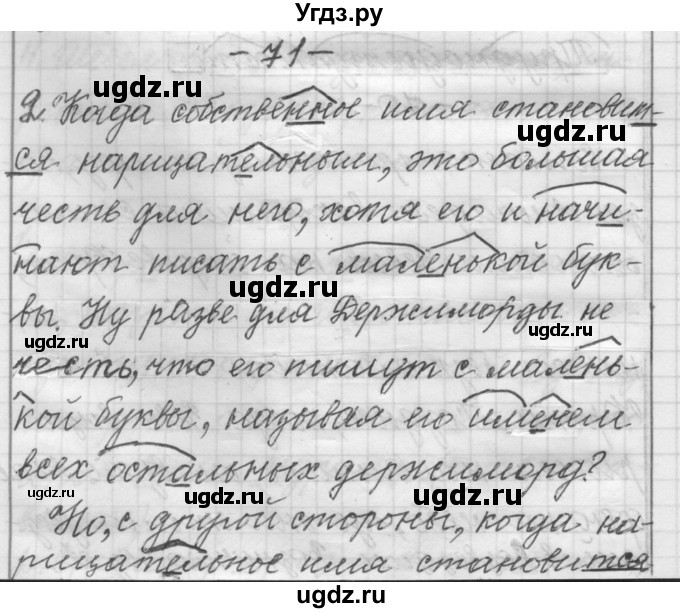 Угдз.ру
- 71 -
ugdz.ru
ugdz.ru
2. Когда собственное имя становит-
ugdz.ru
ся нарицательным, это большая
честь для него, хотя его и начи-
нают писать с маленькой бук-
ugdz.ru
вы. Ну разве для Держиморды не
ugdz.ru ugdz.ru
честь, что его пишут с малень-
кой буквы, называя его именем
ugdz.ru
всех остальных держиморд?
ugdz.ru ugdz.ru ugdz.ru
Но, с другой стороны, когда на-
рицательное имя становится
ugdz.ru